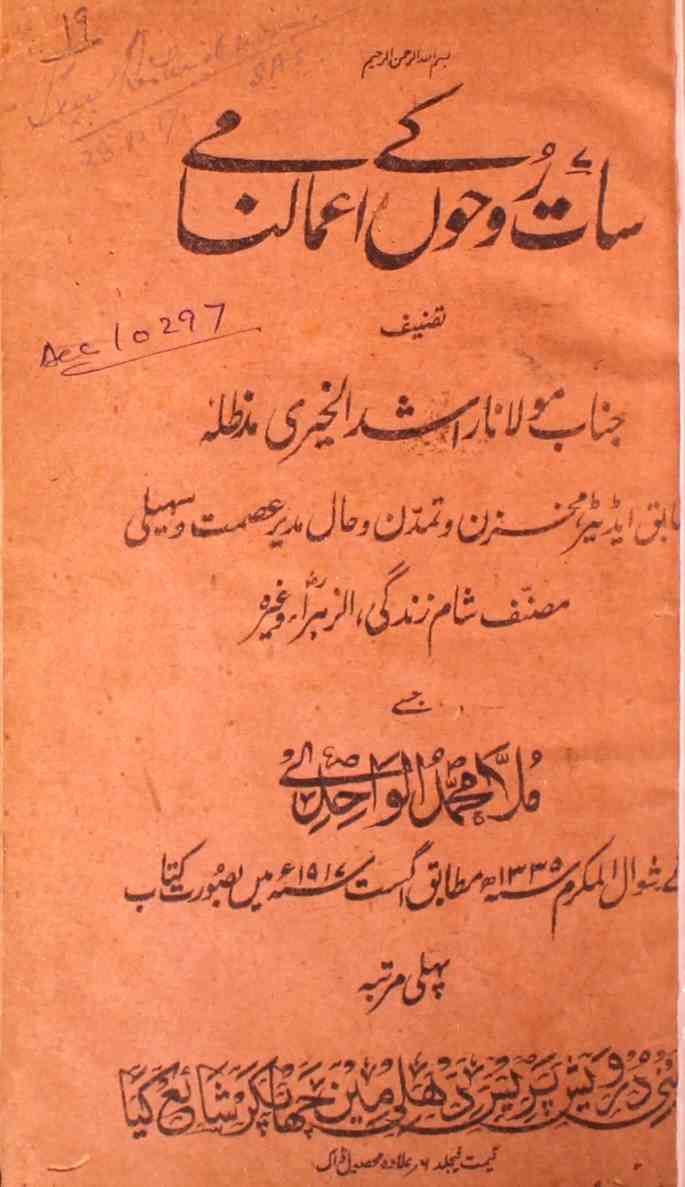 19
بسم اللہ الرحمن الرحیم
سات روحوں کے اعمالنامے
Acc 10297
تصنیف
جناب مولانا راشد الخیری مدظلہ
سابق ایڈیٹر مخزن و تمدّن و حال مدیر عصمت و سہیلی
مصنّف شام زندگی، الزہراؓ، وغیرہ
جسے
مُلّا محمدُ الواحِدِی
نے شوال المکرم ۱۳۳۵ھ مطابق اگست ۱۹۱۷ء میں بصورت کتاب
پہلی مرتبہ
درویش پریس دہلی مین چھاپکر شائع کیا
قیمت فیجلد ۶ر علاوہ محصول ڈاک